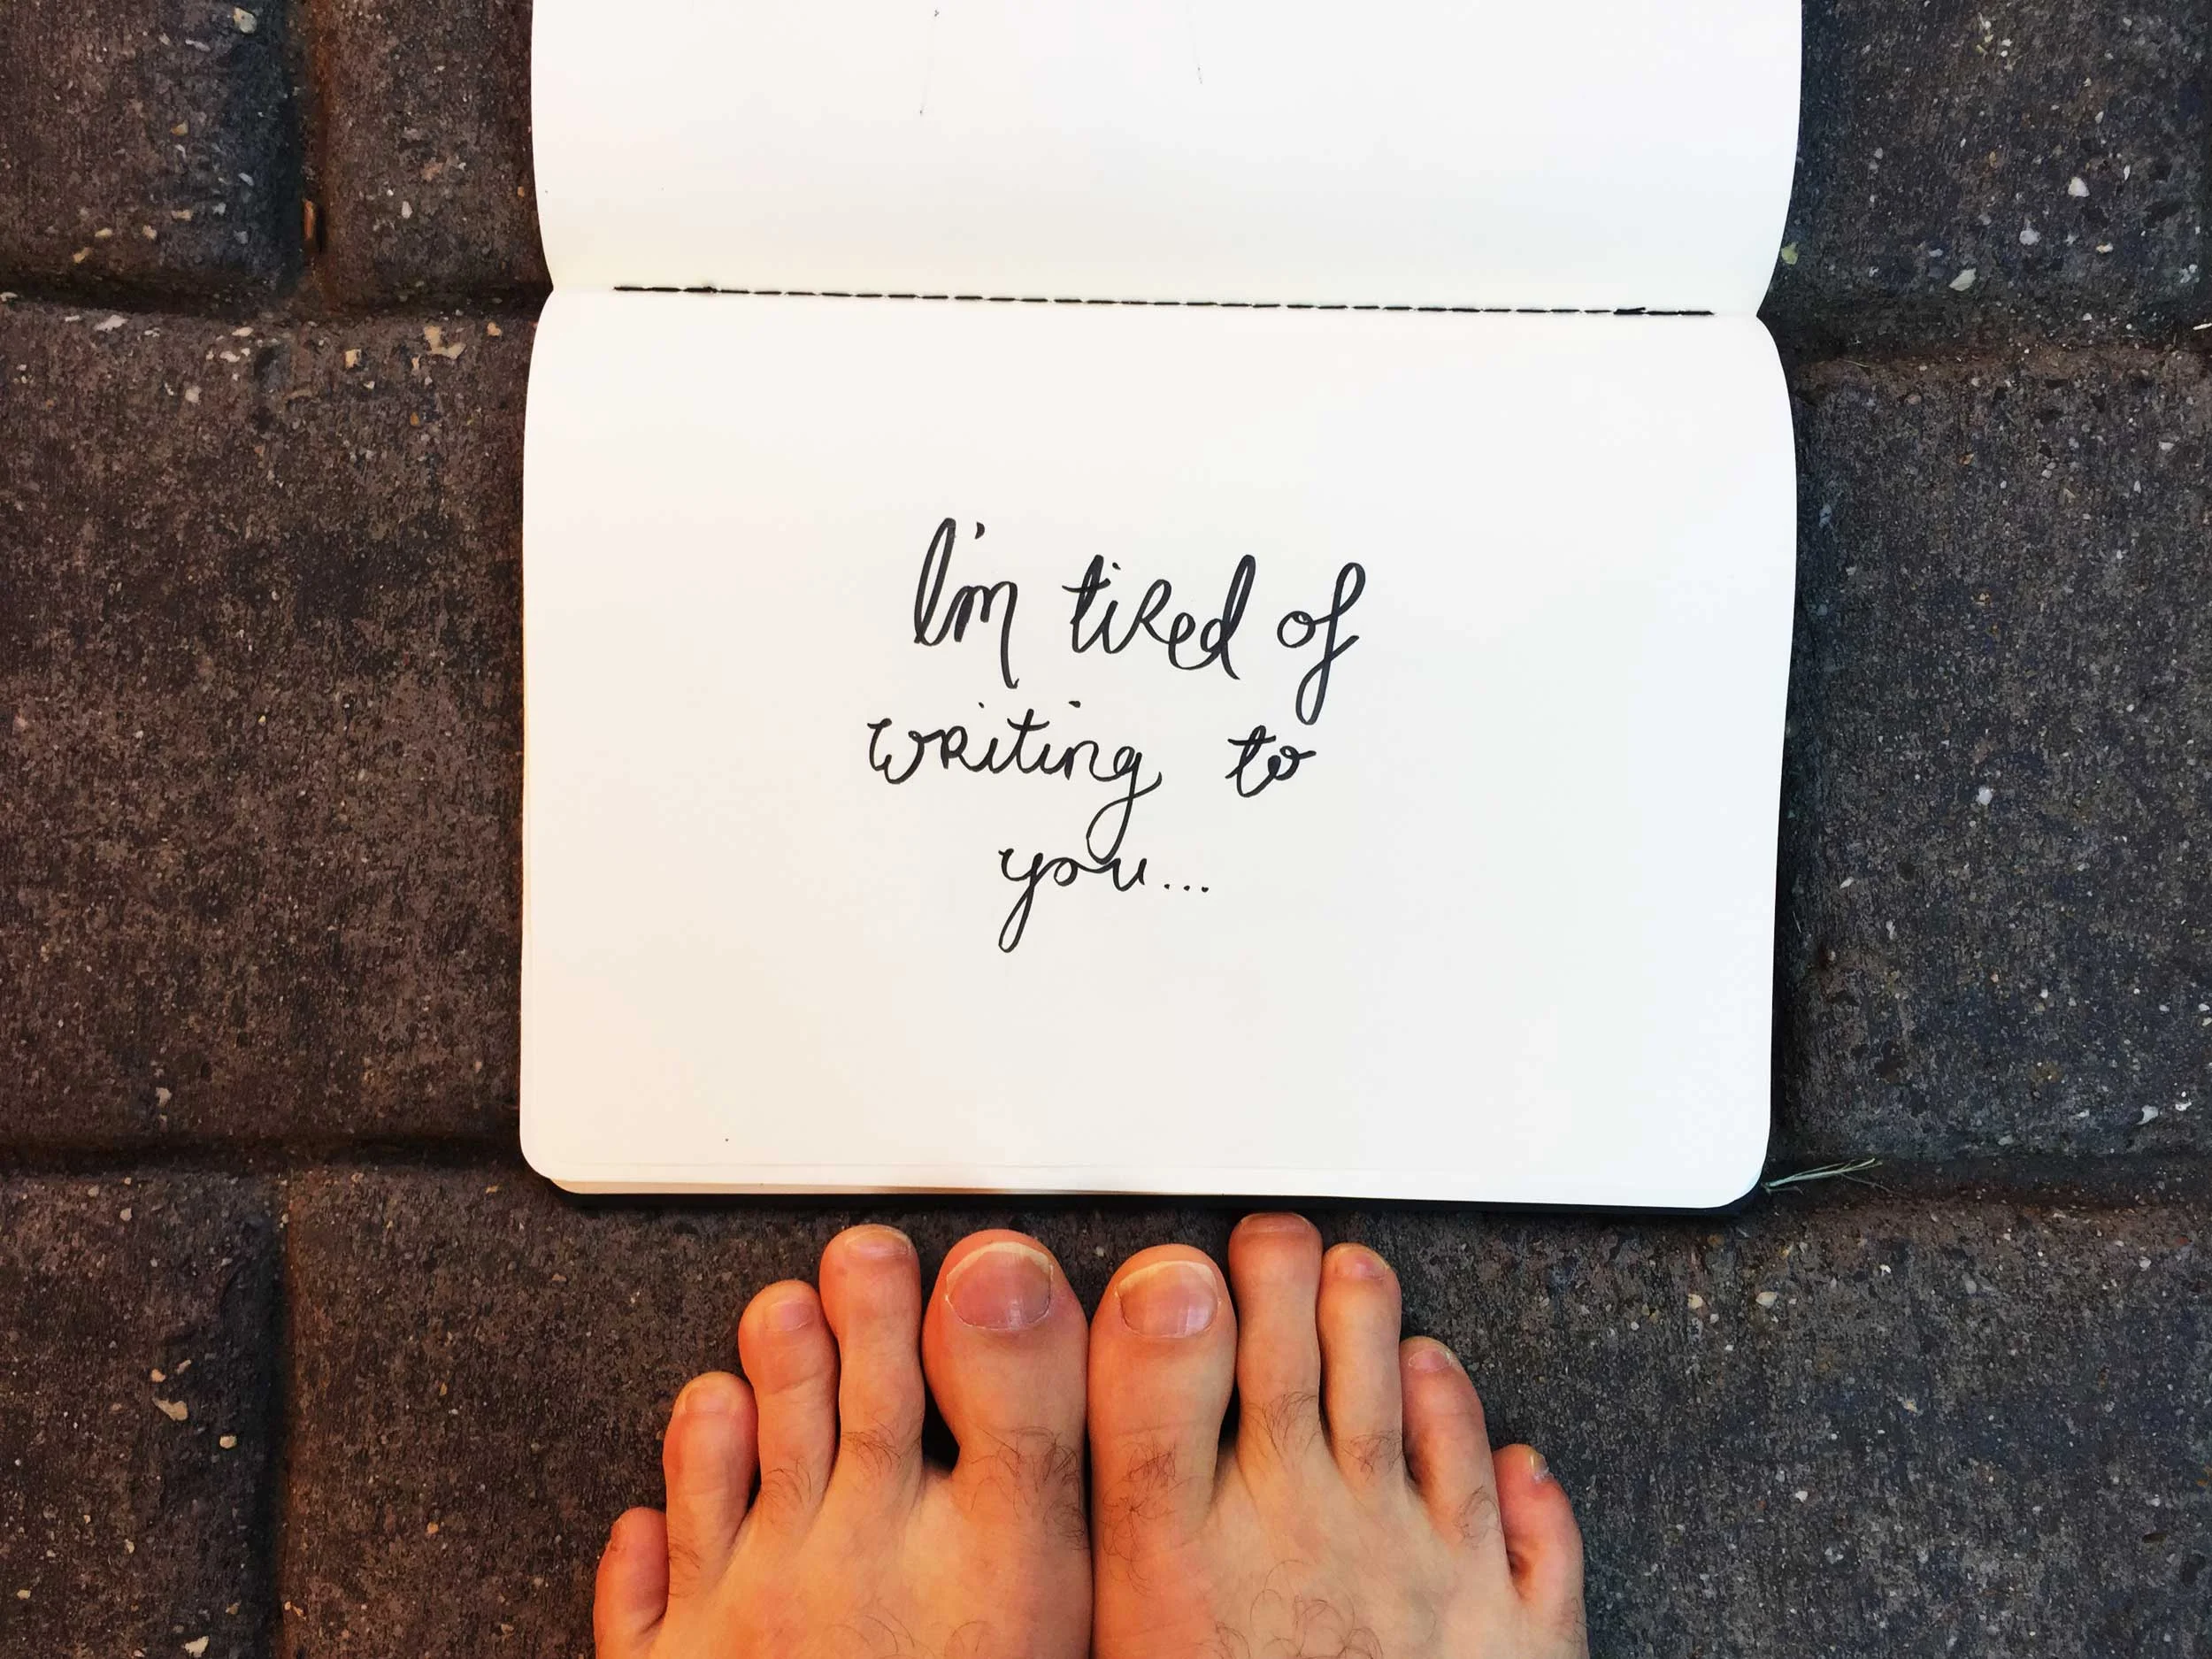 I'm tired of
writing to
you...